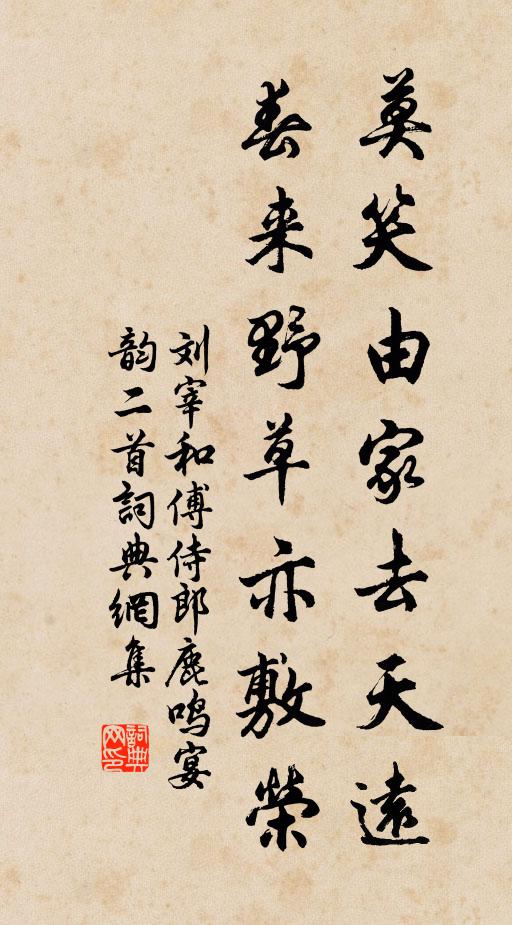 莫笑由家去天遠
春来野草亦敷榮
刘宰和傅侍郎鹿鸣宴
韵二首詞典網集
詞典
网印